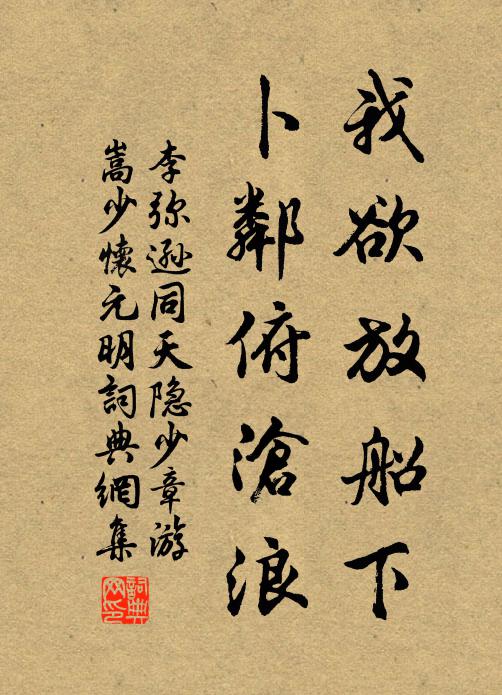 我欲放船下
卜鄰俯滄浪
李弥遜同天隐少章游
嵩少懷元明詞典網集
詞典网印